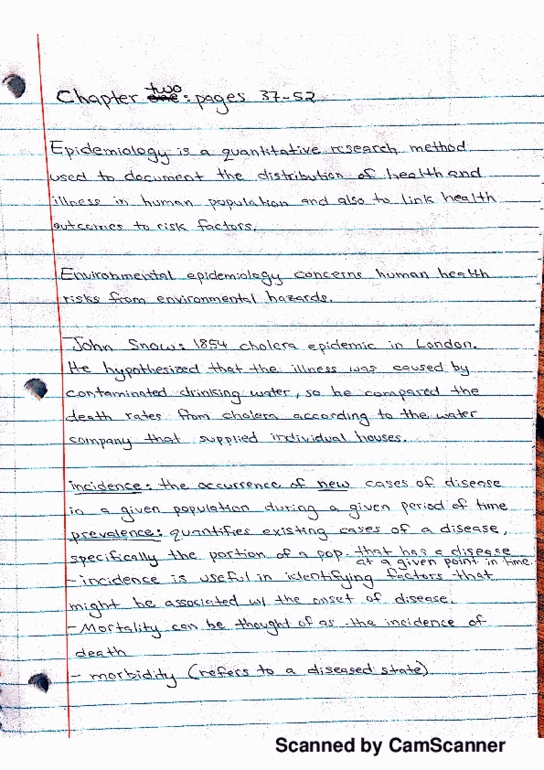 Chapter two: pages 37-52
Epidemiology is a quantitative research method
used to document the distribution of health and
illness in human population and also to link health
outcomes to risk factors.
Environmental epidemiology concerns human health
risks from environmental hazards.
John Snow: 1854 cholera epidemic in London.
He hypothesized that the illness was caused by
contaminated drinking water, so he compared the
death rates from cholera according to the water
company that supplied individual houses.
incidence: the occurrence of new cases of disease
in a given population during a given period of time
prevalence: quantifies existing cases of a disease,
specifically the portion of a pop. that has a disease
at a given point in time.
- incidence is useful in identifying factors that
might be associated w/ the onset of disease.
- Mortality can be thought of as the incidence of
death
- morbidity (refers to a diseased state)
Scanned by CamScanner